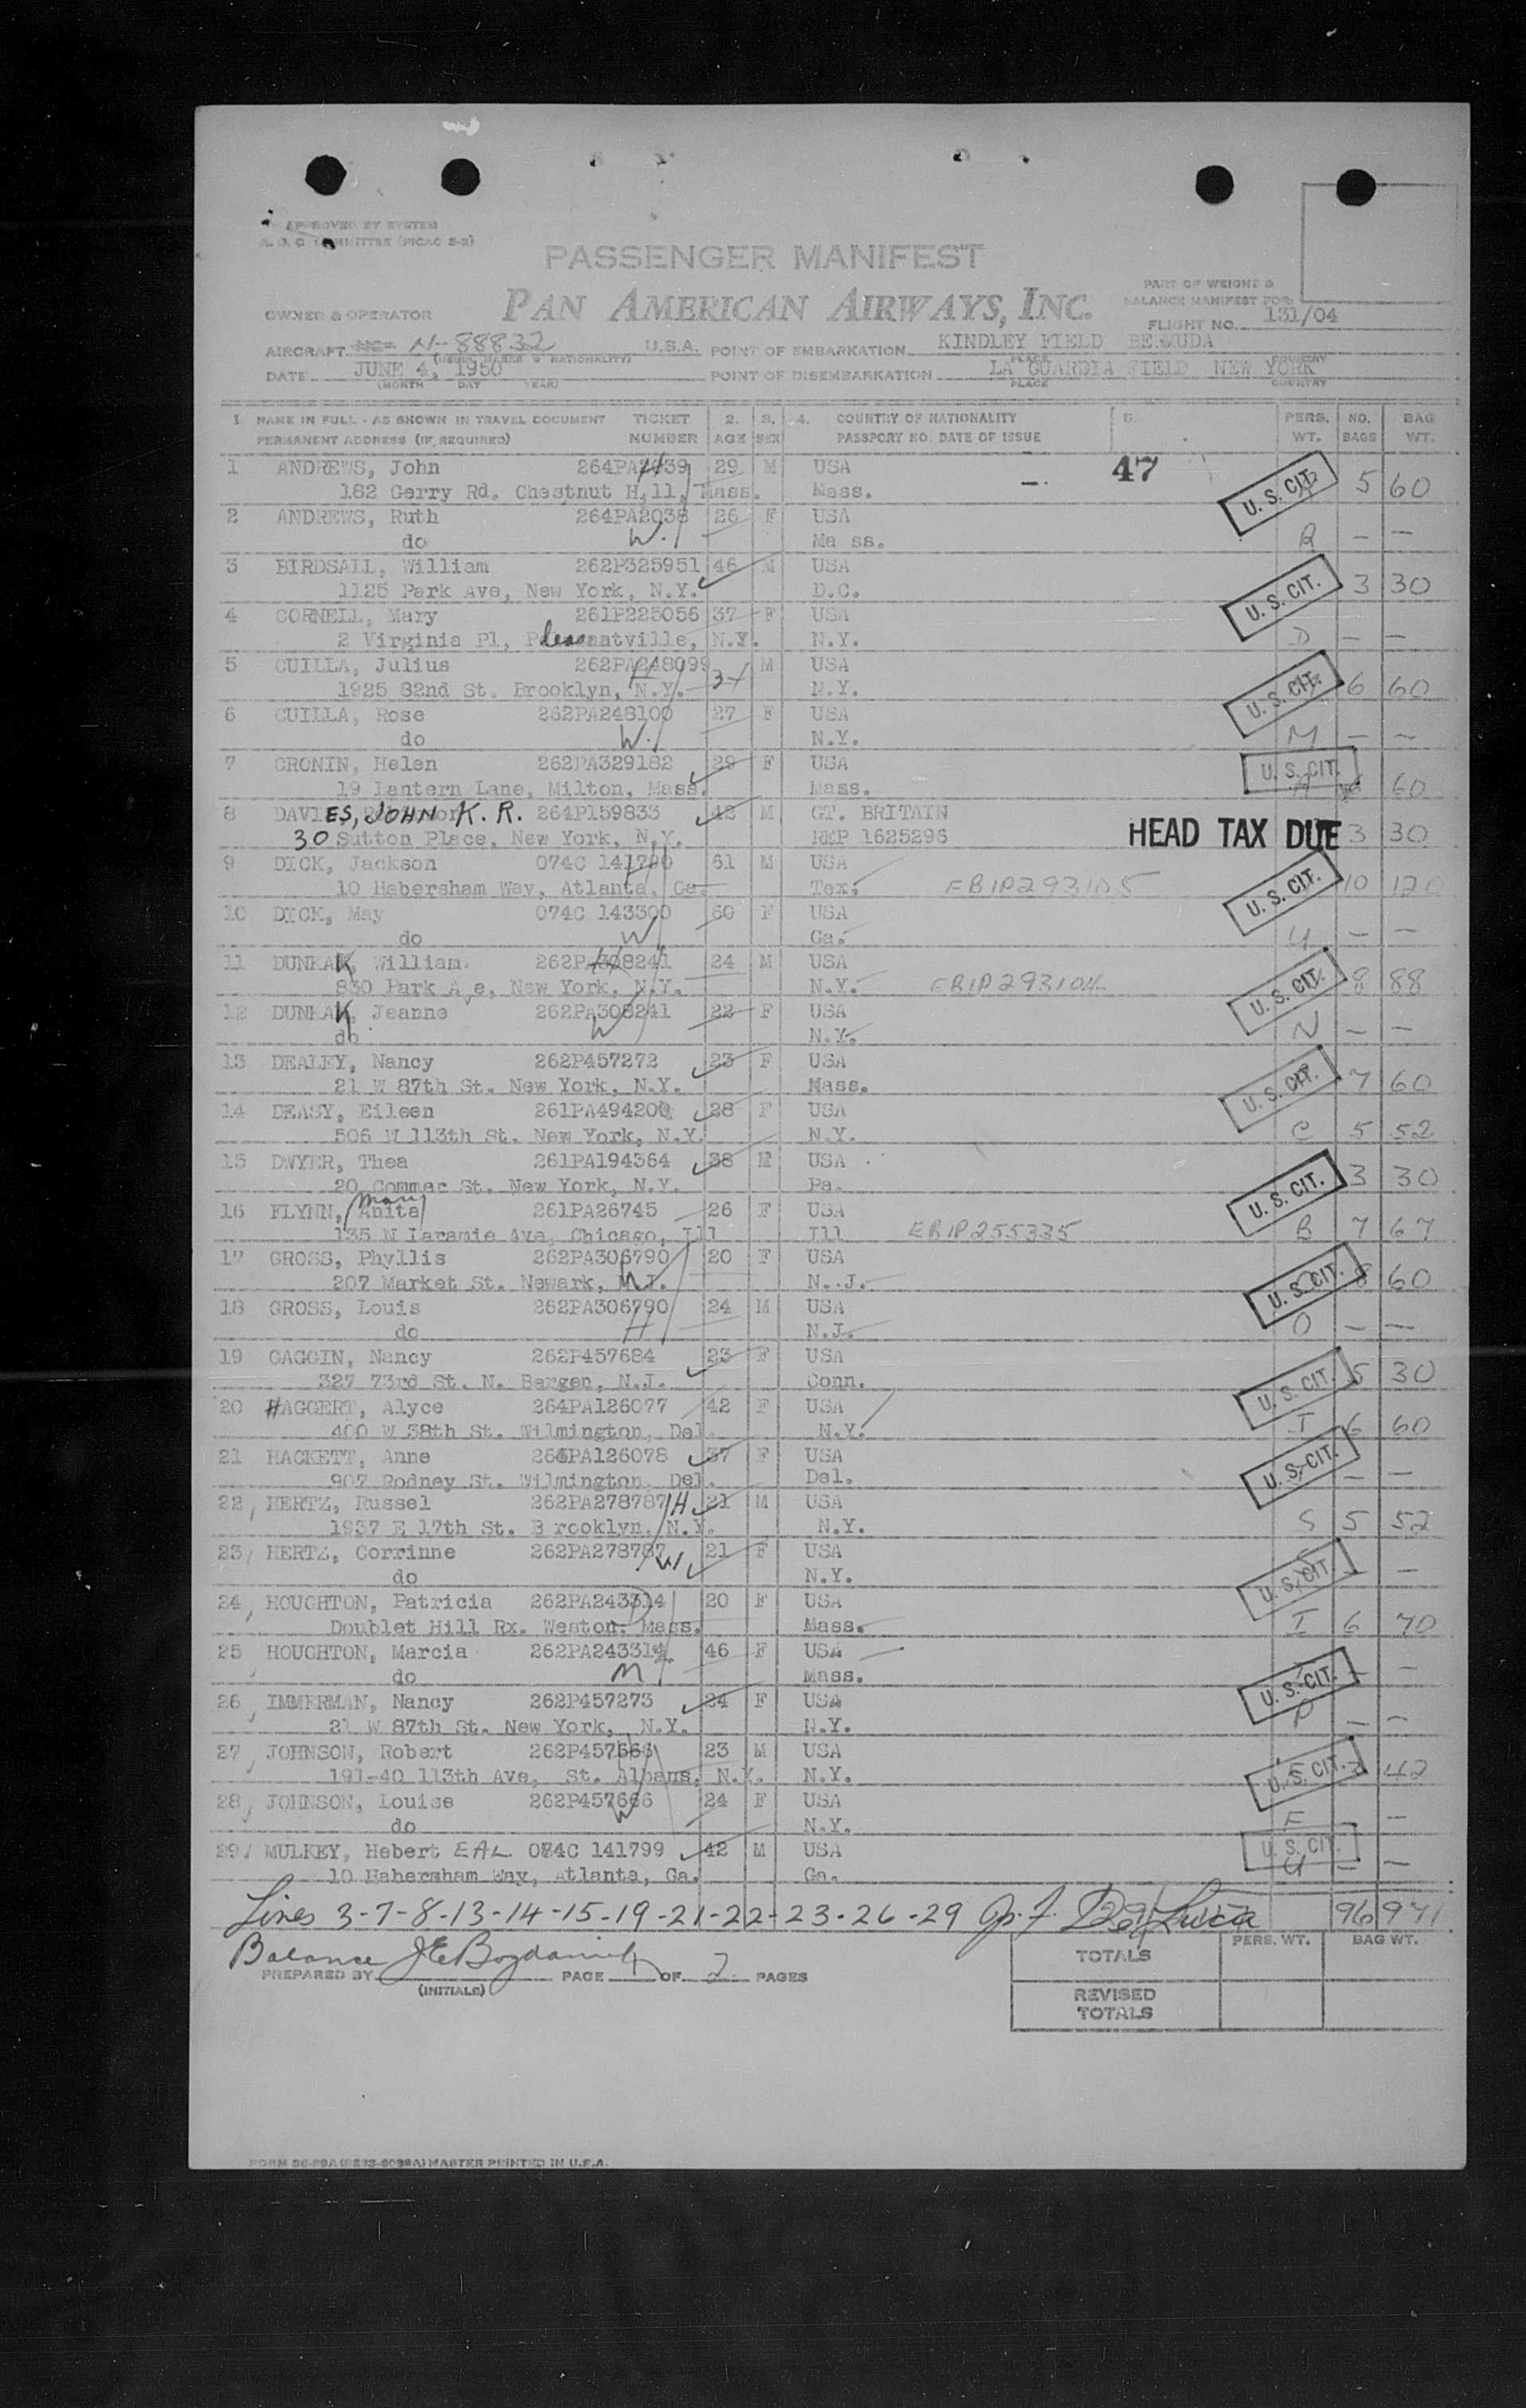 APPROVED BY SYSTEM
A. O. C. COMMITTEE (PICAO 2-2)
PASSENGER MANIFEST
PAN AMERICAN AIRWAYS, INC.
PART OF WEIGHT &
BALANCE MANIFEST FOR:
OWNER & OPERATOR
FLIGHT NO. 131/04
AIRCRAFT NC- N-88832 U.S.A. POINT OF EMBARKATION KINDLEY FIELD BERMUDA
DATE JUNE 4, 1950 POINT OF DISEMBARKATION LA GUARDIA FIELD NEW YORK
(MONTH DAY YEAR) PLACE COUNTRY
1. NAME IN FULL - AS SHOWN IN TRAVEL DOCUMENT TICKET 2. 3. 4. COUNTRY OF NATIONALITY 5. PERS. NO. BAG
PERMANENT ADDRESS (IF REQUIRED) NUMBER AGE SEX PASSPORT NO. DATE OF ISSUE WT. BAGS WT.
1 ANDREWS, John 264PA2039 29 M USA 47
182 Gerry Rd. Chestnut Hill, Mass. Mass. U. S. CIT. 5 60
2 ANDREWS, Ruth 264PA2038 26 F USA
do W. Ma ss. R — —
3 BIRDSALL, William 262P325951 46 M USA
1125 Park Ave, New York, N.Y. D.C. U. S. CIT. 3 30
4 CORNELL, Mary 261P225056 37 F USA
2 Virginia Pl, Pleasantville, N.Y. N.Y. D — —
5 CUILLA, Julius 262PA248099 M USA
1925 82nd St. Brooklyn, N.Y. N.Y. U. S. CIT. 6 60
6 CUILLA, Rose 262PA248100 27 F USA
do W. N.Y. M — —
7 CRONIN, Helen 262PA329182 29 F USA
19 Lantern Lane, Milton, Mass. Mass. U. S. CIT. 60
8 DAVIES, JOHN K. R. 264P159833 42 M GT. BRITAIN
30 Sutton Place, New York, N.Y. REP 1625296 HEAD TAX DUE 3 30
9 DICK, Jackson 074C 141790 61 M USA
10 Habersham Way, Atlanta, Ga. Tex. EBIP293105 U. S. CIT. 10 120
10 DICK, May 074C 143300 60 F USA
do W Ga. — —
11 DUNHAK, William. 262PA308241 24 M USA
830 Park Ave, New York, N.Y. N.Y. EBIP293104 U. S. CIT. 8 88
12 DUNHAK, Jeanne 262PA308241 22 F USA
do W N.Y. N — —
13 DEALEY, Nancy 262P457272 23 F USA
21 W 87th St. New York, N.Y. Mass. U. S. CIT. 7 60
14 DEASY, Eileen 261PA494200 28 F USA
506 W 113th St. New York, N.Y. N.Y. C 5 52
15 DWYER, Thea 261PA194364 38 USA
20 Commer St. New York, N.Y. Pa. U. S. CIT. 3 30
16 FLYNN, Mary Anita 261PA26745 26 F USA
135 N Laramie Ava, Chicago, Ill Ill EBIP255335 B 7 67
17 GROSS, Phyllis 262PA306790 20 F USA
207 Market St. Newark, N.J. N. J. U. S. CIT. 8 60
18 GROSS, Louis 262PA306790 24 M USA
do H N.J. O — —
19 GAGGIN, Nancy 262P457684 23 F USA
327 73rd St. N. Bergen, N.J. Conn. U. S. CIT. 5 30
20 HAGGERT, Alyce 264PA126077 42 F USA
400 W 38th St. Wilmington, Del. N.Y. I 6 60
21 HACKETT, Anne 264PA126078 37 F USA
907 Rodney St. Wilmington, Del. Del. U. S. CIT. — —
22 HERTZ, Russel 262PA278787 H 21 M USA
1937 E 17th St. B rooklyn, N.Y. N.Y. S 5 52
23 HERTZ, Corrinne 262PA278787 W 21 F USA
do N.Y. U. S. CIT — —
24 HOUGHTON, Patricia 262PA243314 20 F USA
Doublet Hill Rx. Weston, Mass. Mass. I 6 70
25 HOUGHTON, Marcia 262PA243314 46 F USA
do M Mass. U. S. CIT. — —
26 IMMERMAN, Nancy 262P457273 24 F USA
21 W 87th St. New York, N.Y. N.Y. P — —
27 JOHNSON, Robert 262P457666 23 M USA
191-40 113th Ave, St. Albans, N.Y. N.Y. U. S. CIT. 3 42
28 JOHNSON, Louise 262P457666 24 F USA
do W N.Y. E — —
29 MULKEY, Hebert EAL 074C 141799 42 M USA
10 Habersham Way, Atlanta, Ga. Ga. U. S. CIT. — —
Lines 3-7-8-13-14-15-19-21-22-23-26-29 Jos. J. De Luca 96 971
Balance J E Bogdanich
PREPARED BY PAGE 1 OF 2 PAGES
(INITIALS)
TOTALS PERS. WT. BAG WT.
REVISED
TOTALS
FORM 36-29A (P233-6098A) MASTER PRINTED IN U.S.A.